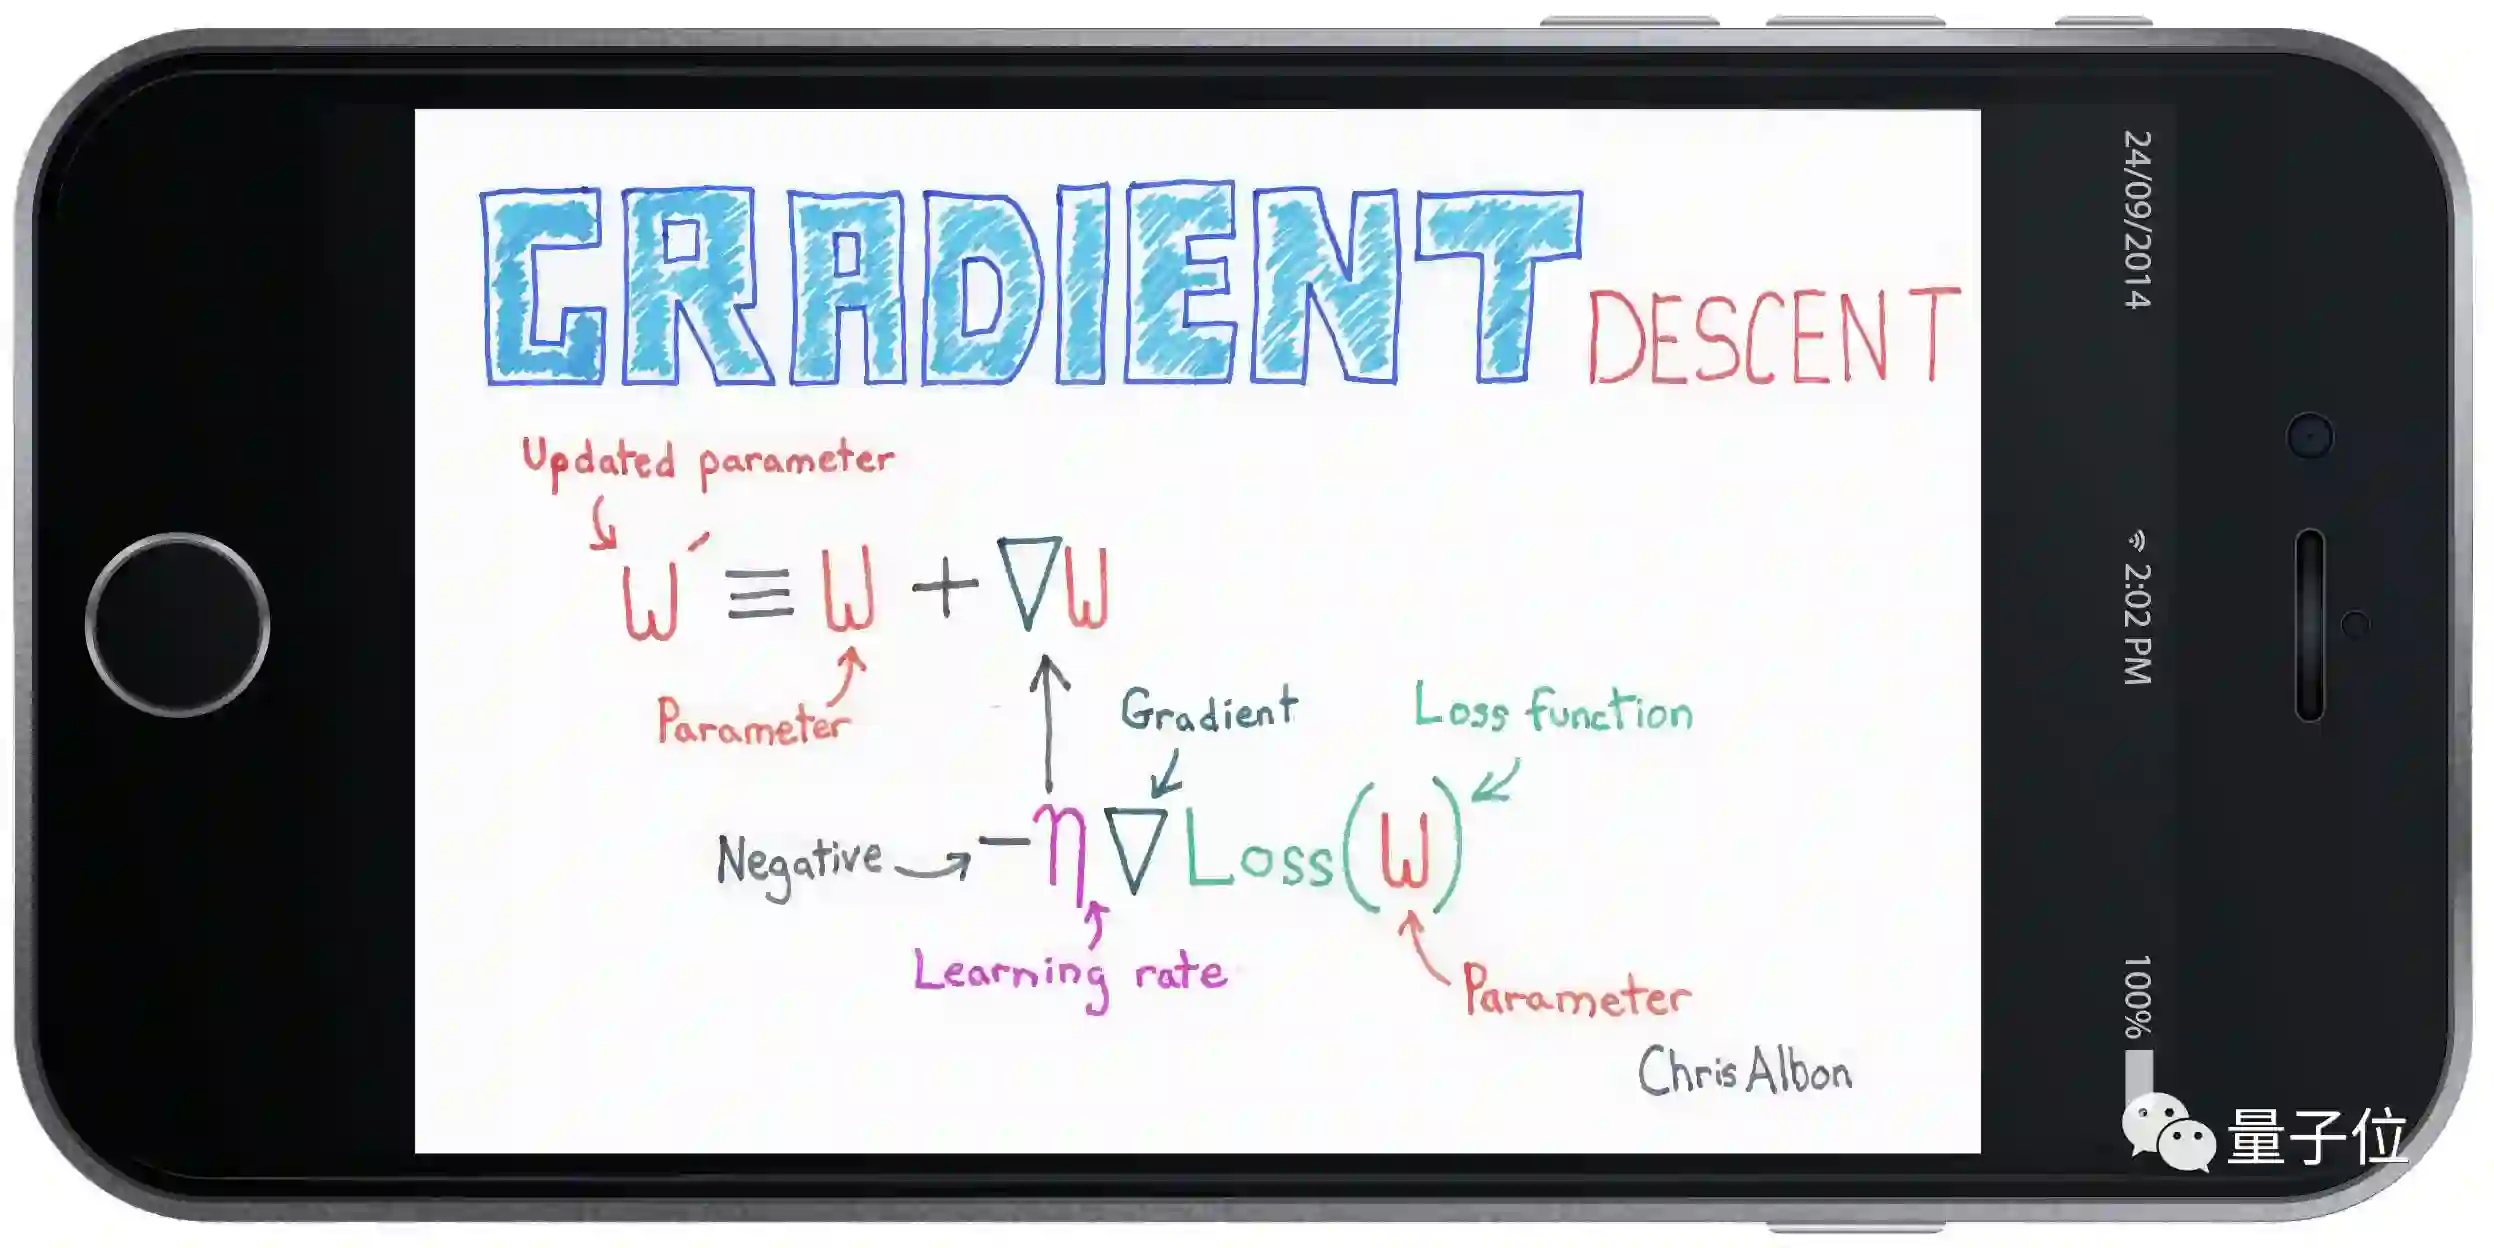 GRADIENT DESCENT
Updated parameter
W′ ≡ W + ▽W
Parameter
Gradient
Loss function
Negative
-η▽Loss(W)
Learning rate
Parameter
Chris Albon
24/09/2014
2:02 PM
100%
量子位